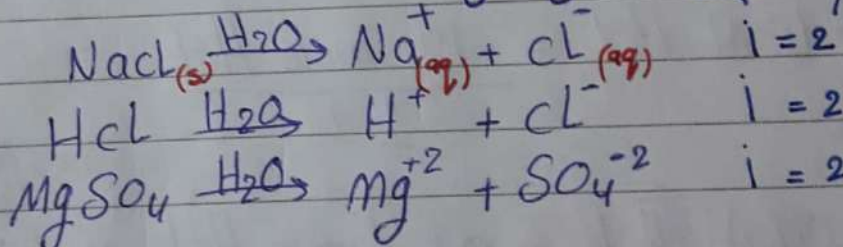 NaCl(s) H2O→ Na+(aq) + Cl-(aq) i = 2
HCl H2O→ H+ + Cl- i = 2
MgSO4 H2O→ Mg+2 + SO4-2 i = 2